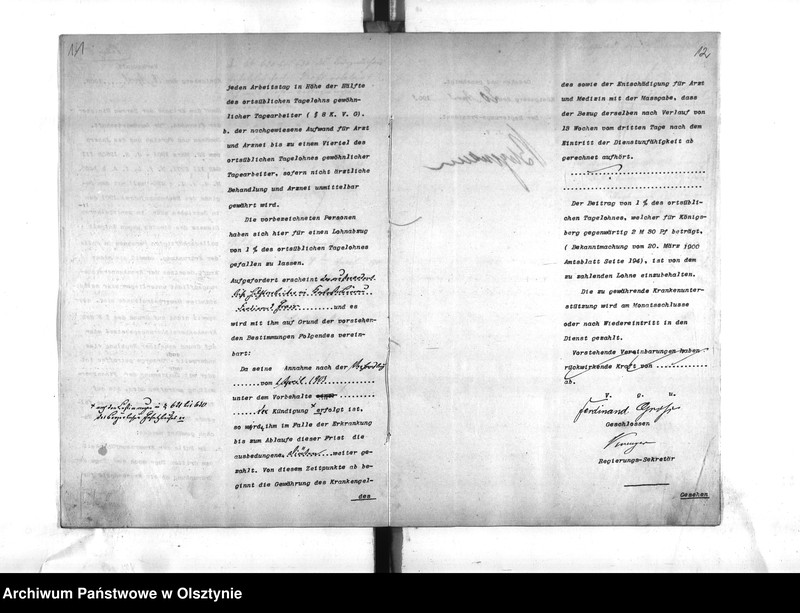 12
jeden Arbeitstag in Höhe der Hälfte
des ortsüblichen Tagelohns gewöhn-
licher Tagearbeiter ( § 8 K. V. G).
b. der nachgewiesene Aufwand für Arzt
und Arznei bis zu einem Viertel des
ortsüblichen Tagelohnes gewöhnlicher
Tagearbeiter, sofern nicht ärztliche
Behandlung und Arznei unmittelbar
gewährt wird.
Die vorbezeichneten Personen
haben sich hier für einen Lohnabzug
von 1 % des ortsüblichen Tagelohnes
gefallen zu lassen.
Aufgefordert erscheint
und es
wird mit ihm auf Grund der vorstehen-
den Bestimmungen Folgendes verein-
bart:
Da seine Annahme nach der
vom 1 April 1901
unter dem Vorbehalte
der Kündigung × erfolgt ist,
so wird ihm im Falle der Erkrankung
bis zum Ablaufe dieser Frist die
ausbedungene weiter ge-
zahlt. Von diesem Zeitpunkte ab be-
ginnt die Gewährung des Krankengel-
des
des sowie der Entschädigung für Arzt
und Medizin mit der Massgabe, dass
der Bezug derselben nach Verlauf von
13 Wochen vom dritten Tage nach dem
Eintritt der Dienstunfähigkeit ab
gerechnet aufhört.
Der Beitrag von 1 % des ortsübli-
chen Tagelohnes, welcher für Königs-
berg gegenwärtig 2 M 30 Pf beträgt,
( Bekanntmachung vom 20. März 1900
Amtsblatt Seite 194), ist von dem
zu zahlenden Lohne einzubehalten.
Die zu gewährende Krankenunter-
stützung wird am Monatsschlusse
oder nach Wiedereintritt in den
Dienst gezahlt.
Vorstehende Vereinbarungen haben
rückwirkende Kraft von
ab.
v. g. u.
Ferdinand Gross
Geschlossen
Regierungs-Sekretär
Gesehen
Archiwum Państwowe w Olsztynie